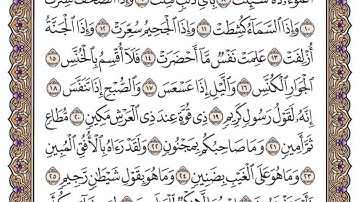 سُئِلَتْ ٨ بِأَيِّ ذَنۢبٍ قُتِلَتْ ٩ وَإِذَا ٱلصُّحُفُ نُشِرَتْ
١٠ وَإِذَا ٱلسَّمَآءُ كُشِطَتْ ١١ وَإِذَا ٱلْجَحِيمُ سُعِّرَتْ ١٢ وَإِذَا ٱلْجَنَّةُ
أُزْلِفَتْ ١٣ عَلِمَتْ نَفْسٌ مَّآ أَحْضَرَتْ ١٤ فَلَآ أُقْسِمُ بِٱلْخُنَّسِ ١٥
ٱلْجَوَارِ ٱلْكُنَّسِ ١٦ وَٱلَّيْلِ إِذَا عَسْعَسَ ١٧ وَٱلصُّبْحِ إِذَا تَنَفَّسَ ١٨
إِنَّهُۥ لَقَوْلُ رَسُولٍ كَرِيمٍ ١٩ ذِى قُوَّةٍ عِندَ ذِى ٱلْعَرْشِ مَكِينٍ ٢٠ مُّطَاعٍ
ثَمَّ أَمِينٍ ٢١ وَمَا صَاحِبُكُم بِمَجْنُونٍ ٢٢ وَلَقَدْ رَءَاهُ بِٱلْأُفُقِ ٱلْمُبِينِ
٢٣ وَمَا هُوَ عَلَى ٱلْغَيْبِ بِضَنِينٍ ٢٤ وَمَا هُوَ بِقَوْلِ شَيْطَٰنٍ رَّجِيمٍ ٢٥